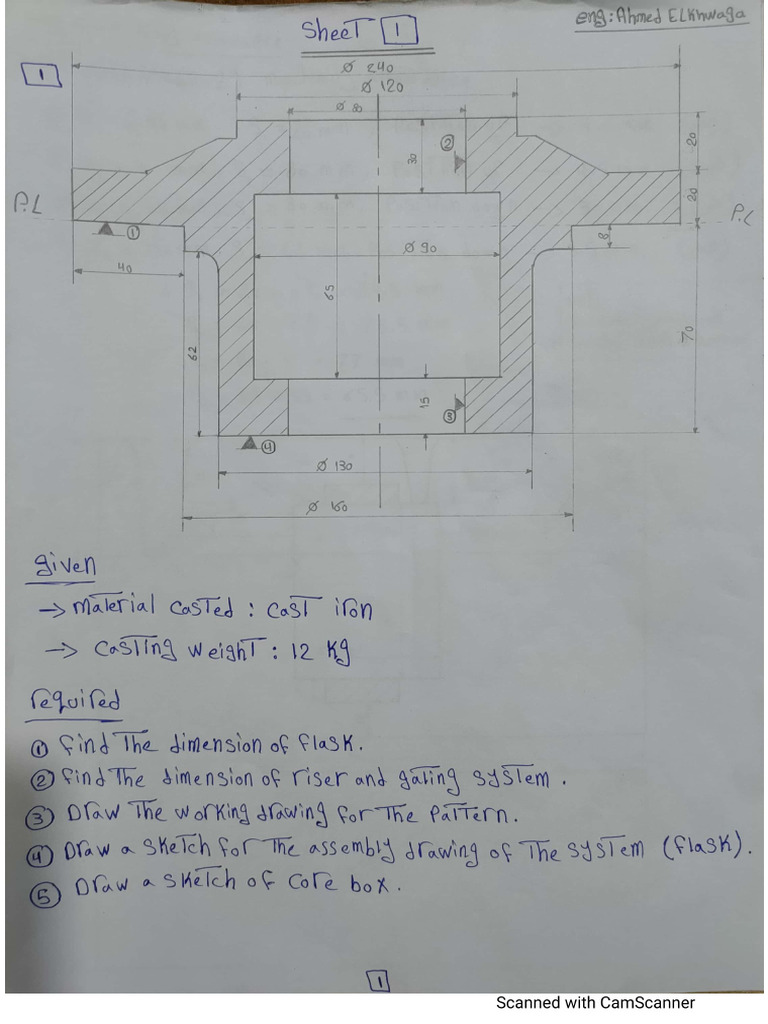 Sheet 1
eng: Ahmed ELKhwaga
1
Ø 240
Ø 120
Ø 80
②
30
20
20
P.L
P.L
①
8
40
Ø 90
65
62
70
15
③
④
Ø 130
Ø 160
given
→ Material casted : cast iron
→ casting weight : 12 Kg
required
① find the dimension of flask.
② find the dimension of riser and gating system.
③ Draw the working drawing for the pattern.
④ Draw a sketch for the assembly drawing of the system (flask).
⑤ Draw a sketch of core box.
1
Scanned with CamScanner